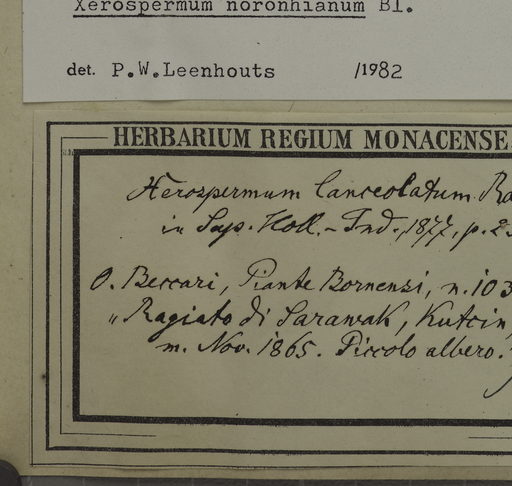 Xerospermum noronhianum Bl.
det. P.W.Leenhouts /1982
HERBARIUM REGIUM MONACENSE.
Xerospermum lanceolatum Ra
in Sap. Holl.-Ind., 1877, p. 2
O. Beccari, Piante Bornensi, n. 103
„ Ragiato di Sarawak, Kutcin,
m. Nov. 1865. Piccolo albero.